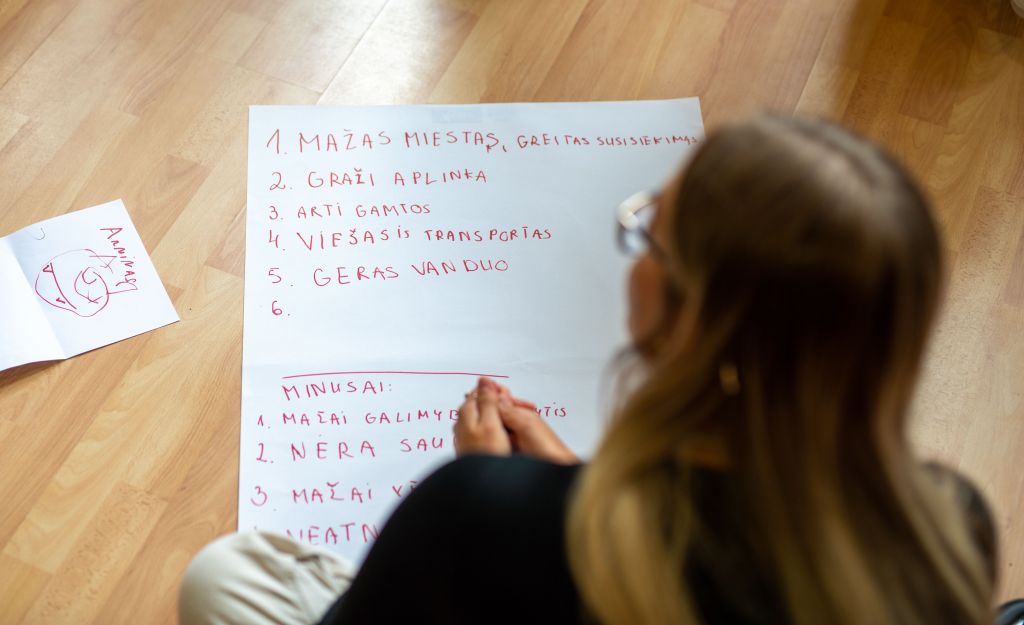 1. MAŽAS MIESTAS, GREITAS SUSISIEKIMAS
2. GRAŽI APLINKA
3. ARTI GAMTOS
4. VIEŠASIS TRANSPORTAS
5. GERAS VANDUO
6.
MINUSAI:
1. MAŽAI
2. NĖRA
3 MAŽAI